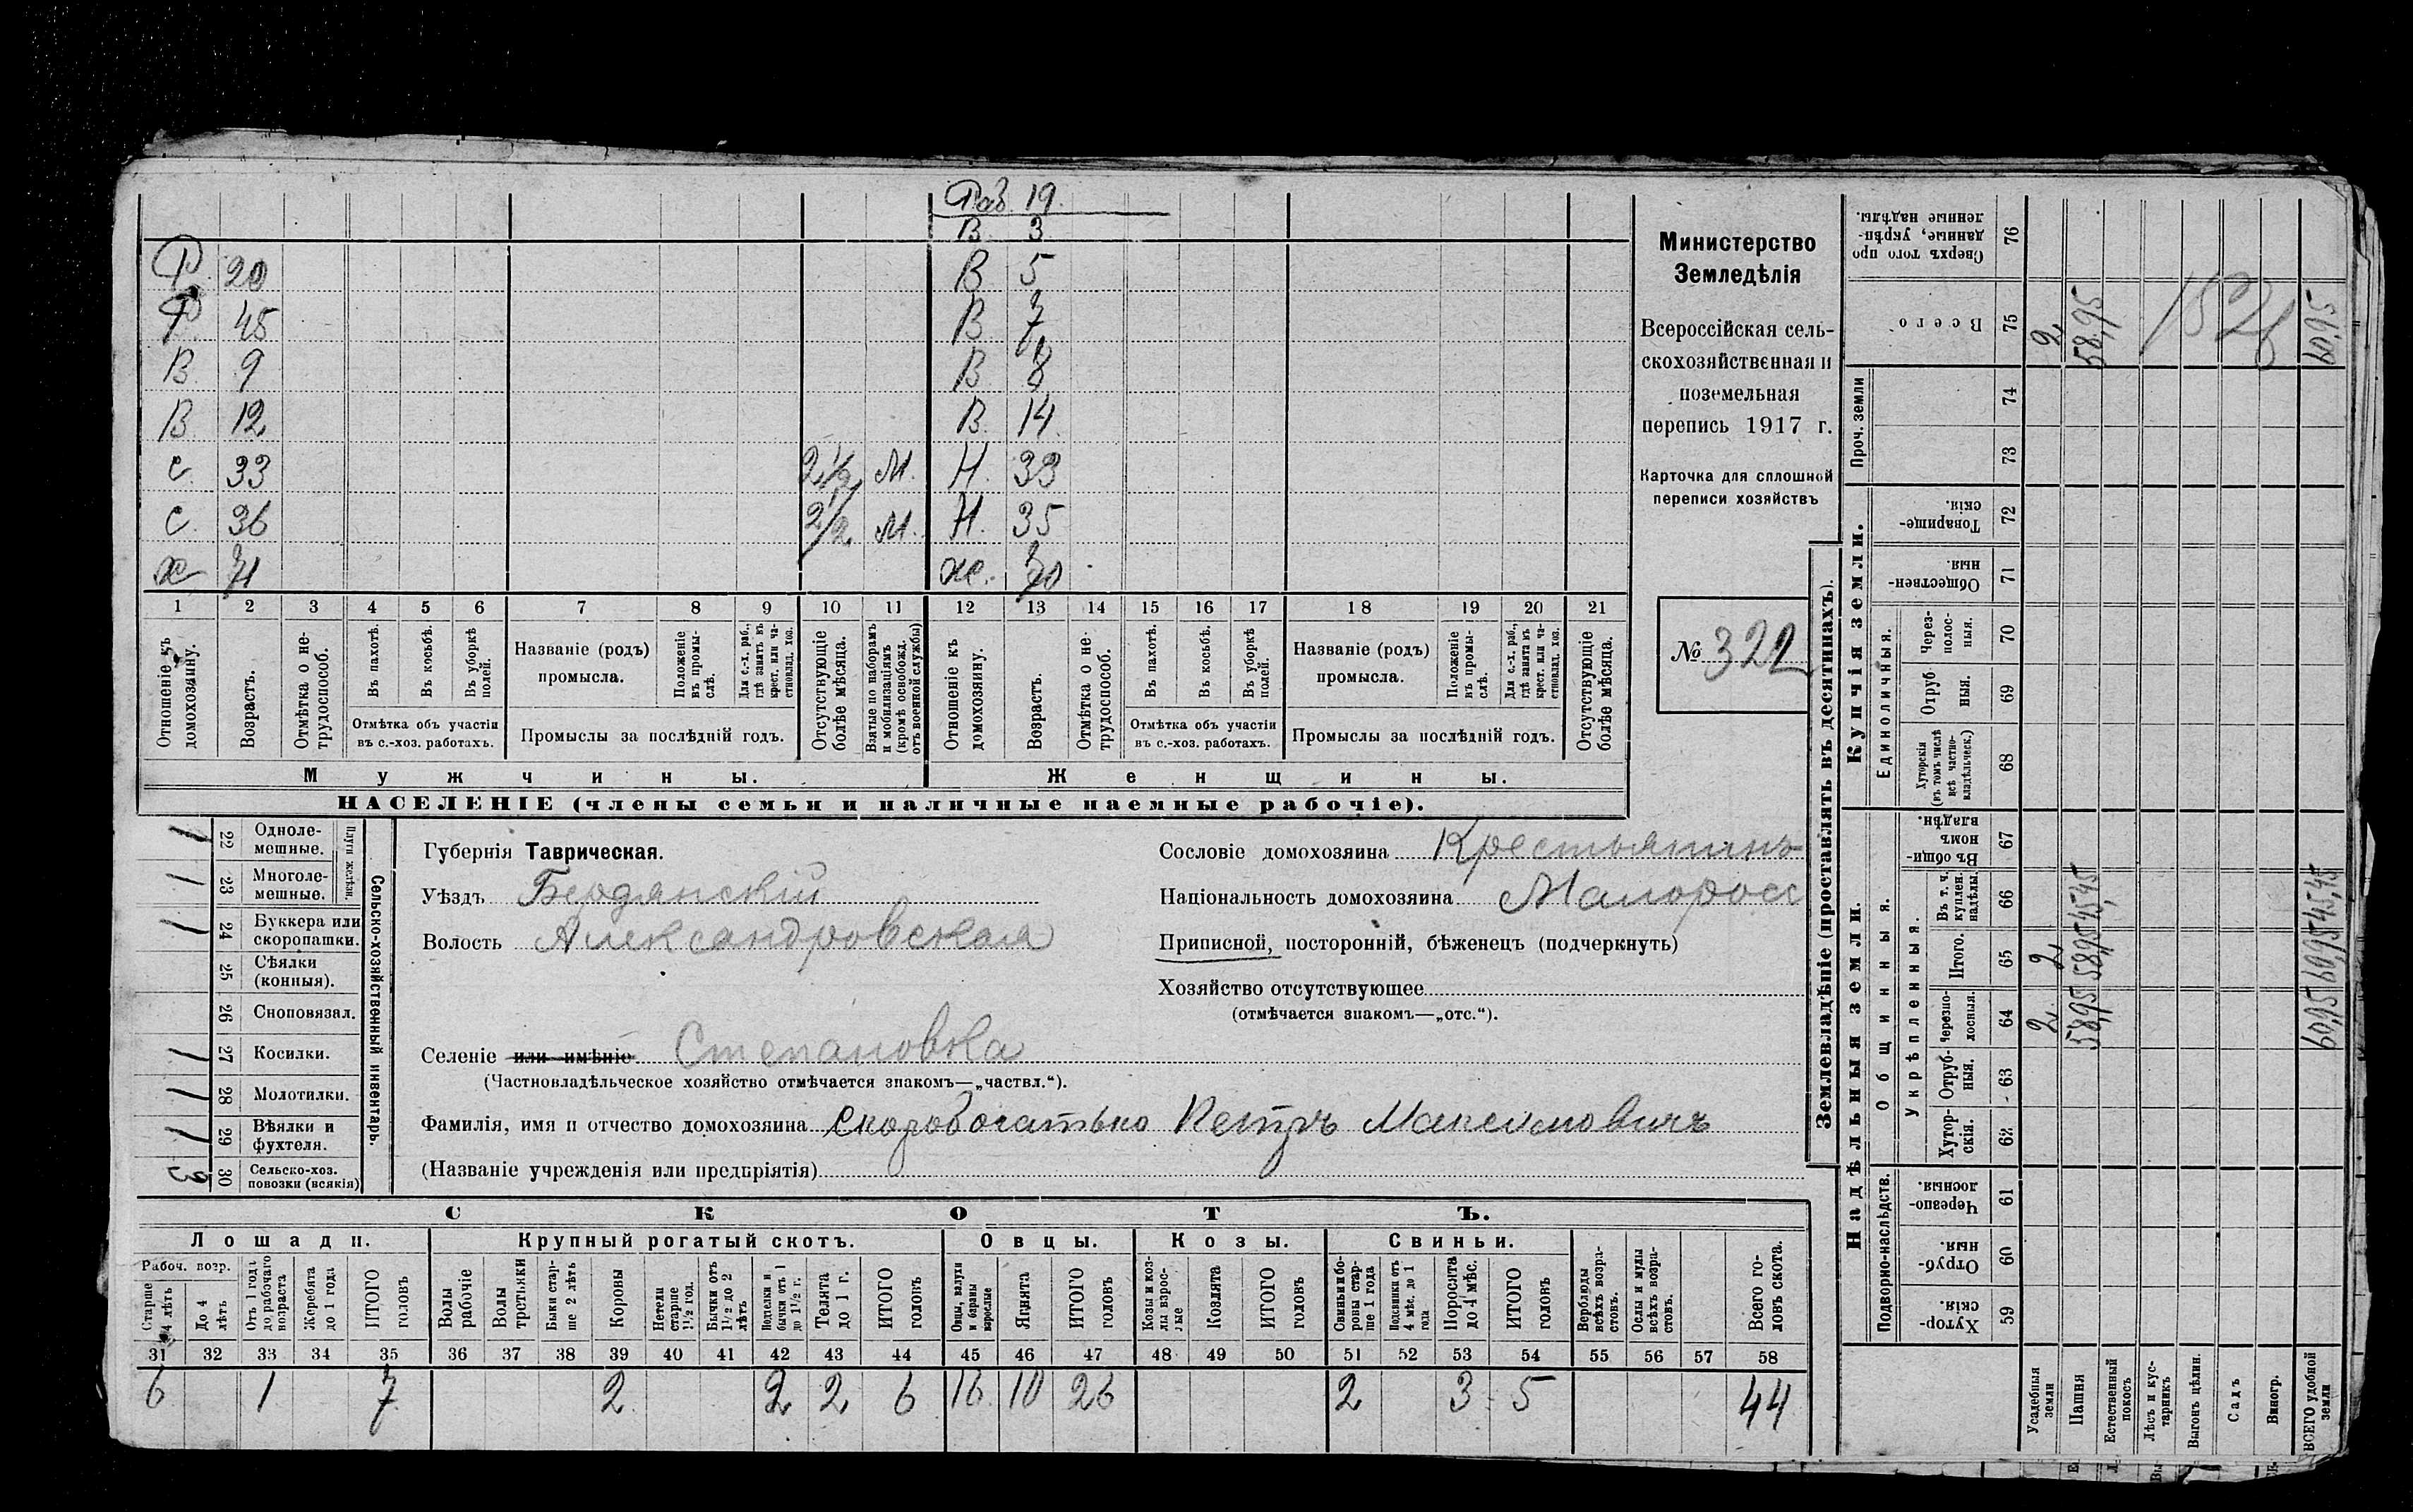 Раб. 19.
В. 3
Р. 20 В 5
Р 45 В 7
В 9 В 8
В. 12 В. 14
с. 33 2½ М. Н. 33
с. 36 2½ М. Н. 35
х 71 ж. 70
1 2 3 4 5 6 7 8 9 10 11 12 13 14 15 16 17 18 19 20 21
Отношеніе къ домохозяину.
Возрастъ.
Отмѣтка о нетрудоспособ.
Въ пахотѣ.
Въ косьбѣ.
Въ уборкѣ полей.
Отмѣтка объ участіи въ с.-хоз. работахъ.
Названіе (родъ) промысла.
Положеніе въ промыслѣ.
Для с.-х. раб., гдѣ занятъ въ крест. или частновлад. хоз.
Промыслы за послѣдній годъ.
Отсутствующіе болѣе мѣсяца.
Взятые по наборамъ и мобилизаціямъ (кромѣ освобожд. отъ военной службы)
Отношеніе къ домохозяину.
Возрастъ.
Отмѣтка о нетрудоспособ.
Въ пахотѣ.
Въ косьбѣ.
Въ уборкѣ полей.
Отмѣтка объ участіи въ с.-хоз. работахъ.
Названіе (родъ) промысла.
Положеніе въ промыслѣ.
Для с.-х. раб., гдѣ занята въ крест. или частновлад. хоз.
Промыслы за послѣдній годъ.
Отсутствующіе болѣе мѣсяца.
Мужчины. Женщины.
НАСЕЛЕНІЕ (члены семьи и наличные наемные рабочіе).
Министерство
Земледѣлія
Всероссійская сель-
скохозяйственная и
поземельная
перепись 1917 г.
Карточка для сплошной
переписи хозяйствъ
№ 322
Сельско-хозяйственный инвентарь.
Плуги желѣзн.
1 22 Однолемешные.
1 23 Многолемешные.
1 24 Буккера или скоропашки.
25 Сѣялки (конныя).
26 Сноповязал.
1 27 Косилки.
1 28 Молотилки.
1 29 Вѣялки и фухтеля.
3 30 Сельско-хоз. повозки (всякія)
Губернія Таврическая.
Уѣздъ Бердянскій
Волость Александровская
Селеніе или имѣніе Степановка
(Частновладѣльческое хозяйство отмѣчается знакомъ—„частвл.“).
Фамилія, имя и отчество домохозяина Скоробогатько Петръ Максимовичъ
(Названіе учрежденія или предпріятія)
Сословіе домохозяина Крестьянинъ
Національность домохозяина Малоросс
Приписной, посторонній, бѣженецъ (подчеркнуть)
Хозяйство отсутствующее
(отмѣчается знакомъ—„отс.“).
СКОТЪ.
Лошади. Крупный рогатый скотъ. Овцы. Козы. Свиньи.
Рабоч. возр.
Старше 4 лѣтъ
До 4 лѣтъ
Отъ 1 года до рабочаго возраста
Жеребята до 1 года
ИТОГО головъ
Волы рабочіе
Волы третьяки
Быки старше 2 лѣтъ
Коровы
Нетели старше 1½ год.
Бычки отъ 1½ до 2 лѣтъ
Подтелки и бычки отъ 1 до 1½ г.
Телята до 1 г.
ИТОГО головъ
Овцы, валухи и бараны взрослые
Ягнята
ИТОГО головъ
Козы и козлы взрослые
Козлята
ИТОГО головъ
Свиньи и боровы старше 1 года
Подсвинки отъ 4 мѣс. до 1 года
Поросята до 4 мѣс.
ИТОГО головъ
Верблюды всѣхъ возрастовъ.
Ослы и мулы всѣхъ возрастовъ.
Всего головъ скота.
31 32 33 34 35 36 37 38 39 40 41 42 43 44 45 46 47 48 49 50 51 52 53 54 55 56 57 58
6 1 7 2 2 2 6 16 10 26 2 3 5 44
Землевладѣніе (проставлять въ десятинахъ).
Надѣльныя земли.
Купчія земли.
Проч. земли
Подворно-наслѣдств.
Общинныя.
Укрѣпленныя.
Единоличныя.
Сверхъ того проданные, укрѣпленные надѣлы. 76
Всего 75
74
73
Товарищескія. 72
Общественныя. 71
Черезполосныя. 70
Отрубныя. 69
Хуторскія (въ томъ числѣ всѣ частновладѣльческ.) 68
Въ общинномъ владѣн. 67
Въ т. ч. куплен. надѣлы. 66
Итого. 65
Черезполосныя. 64
Отрубныя. 63
Хуторскія. 62
Черезполосныя. 61
Отрубныя. 60
Хуторскія. 59
Усадебныя земли 2 2, 2,
Пашня 58,95 58,95 45,45 58,95
Естественный покосъ
Лѣсъ и кустарникъ
Выгонъ цѣлин.
Садъ
Виногр.
ВСЕГО удобной земли 60,95 60,95 45,45 60,95